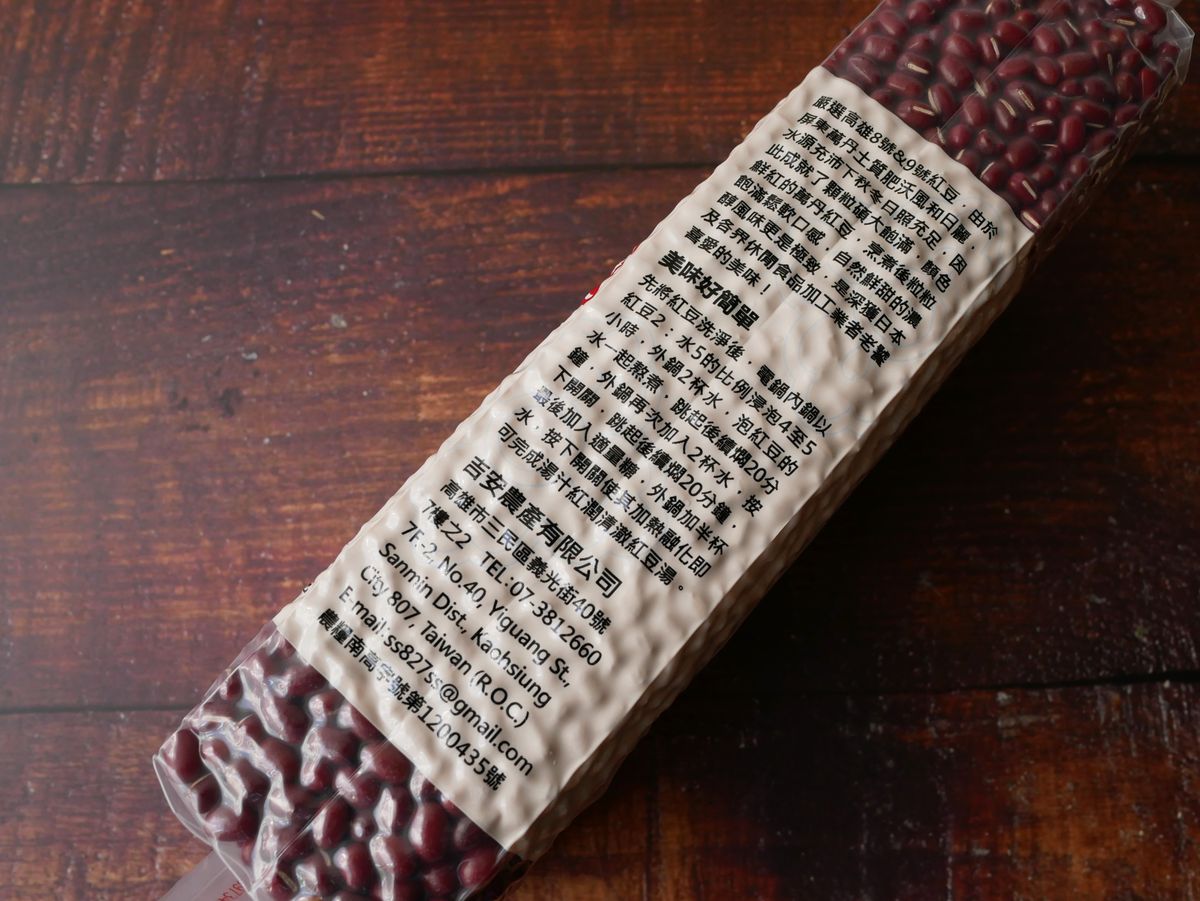 嚴選高雄8號&9號紅豆，由於
屏東萬丹土質肥沃風和日麗，
水源充沛下秋冬日照充足，因
此成就了顆粒碩大飽滿，顏色
鮮紅的萬丹紅豆，烹煮後粒粒
飽滿鬆軟口感，自然鮮甜的濃
醇風味更是極致，是深獲日本
及各界休閒食品加工業者老饕
喜愛的美味！
美味好簡單
先將紅豆洗淨後，電鍋內鍋以
紅豆2：水5的比例浸泡4至5
小時，外鍋2杯水，泡紅豆的
水一起熬煮，跳起後續燜20分
鐘，外鍋再次加入2杯水，按
下開關，跳起後續燜20分鐘，
最後加入適量糖，外鍋加半杯
水，按下開關使其加熱融化即
可完成湯汁紅潤清澈紅豆湯。
吉安農產有限公司
高雄市三民區義光街40號
7樓之2 TEL:07-3812660
7F.-2, No.40, Yiguang St.,
Sanmin Dist., Kaohsiung
City 807, Taiwan (R.O.C.)
E mail:ss827ss@gmail.com
農糧南高字號第1200435號